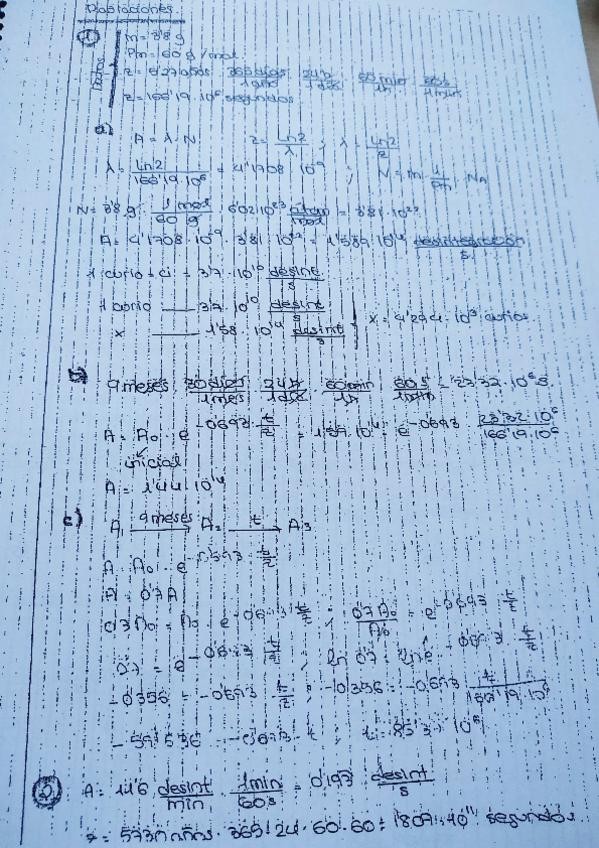 ①
Datos
m = 3'8 g
Pm = 60 g/mol
z = 5'27 años 365 días/1 año 24 h/1 día 60 min/1h 60 s/1 min
z = 166'19·10⁶ segundos
a)
A = λ·N z = Ln2/λ ; λ = Ln2/z
λ = Ln2/166'19·10⁶ = 4'1708·10⁻⁹ ; N = m · 1/Pm · NA
N = 3'8 g · 1 mol/60 g · 6'02·10²³ átom/mol = 3'81·10²²
A = 4'1708·10⁻⁹ · 3'81·10²² = 1'589·10¹⁴ desintegración/s
1 curio = Ci = 3'7·10¹⁰ desint/s
1 curio —— 3'7·10¹⁰ desint/s
x —— 1'58·10¹⁴ desint/s x = 4'294·10³ curios
b)
9 meses 30 días/1 mes · 24 h/1 día · 60 min/1h · 60 s/1 min = 23'32·10⁶ s.
A = A₀ · e^-0'693 · t/z = 1'59·10¹⁴ · e^-0'693 23'32·10⁶/166'19·10⁶
inicial
A = 1'44·10¹⁴
c)
A₁ 9 meses→ A₂ t→ A₃
A = A₀ · e^-0'693 · t/z
A = 0'7A
0'7A₀ = A₀ · e^-0'693 · t/z ; 0'7A₀/A₀ = e^-0'693 t/z
0'7 = e^-0'693 t/z ; ln 0'7 = lne^-0'693 · t/z
-0'356 = -0'693 t/z ; -0'356 = -0'693 t/166'19·10⁶
-59'536 = -0'693 · t ; t = 85'3·10⁶
②
A = 11'6 desint/min · 1min/60s = 0'193 desint/s
z = 5730 años · 365 · 24 · 60 · 60 = 1'807·10¹¹ segundos.